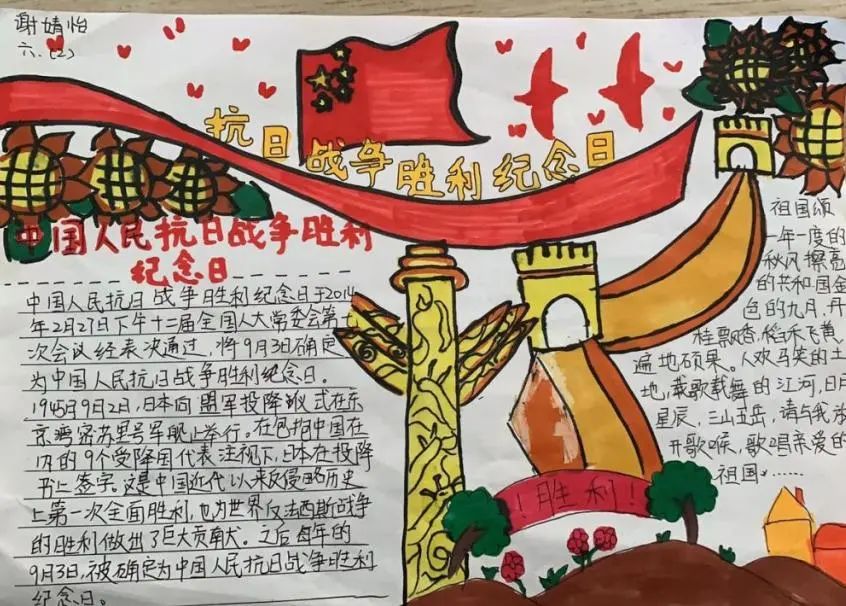 谢婧怡
六.(2)
抗日战争胜利纪念日
中国人民抗日战争胜利
纪念日
中国人民抗日战争胜利纪念日于2014
年2月27日下午十二届全国人大常委会第七
次会议经表决通过,将9月3日确定
为中国人民抗日战争胜利纪念日。
1945年9月2日,日本向盟军投降仪式在东
京湾密苏里号军舰上举行。在包括中国在
内的9个受降国代表注视下,日本在投降
书上签字。这是中国近代以来反侵略历史
上第一次全面胜利,也为世界反法西斯战争
的胜利做出了巨大贡献。之后每年的
9月3日,被确定为中国人民抗日战争胜利
纪念日。
祖国颂
一年一度的
秋风擦亮
的共和国金
色的九月,丹
桂飘香,稻禾飞黄
遍地硕果。人欢马笑的土
地,载歌载舞的江河,日月
星辰,三山五岳,请与我放
开歌喉,歌唱亲爱的
祖国……
!胜利!